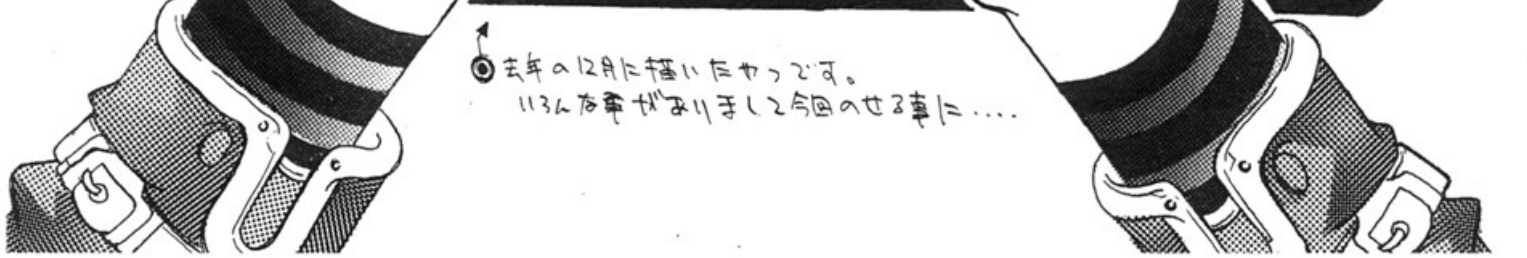 去年の12月に描いたやつです。
いろんな事がありまして今回のせる事に....